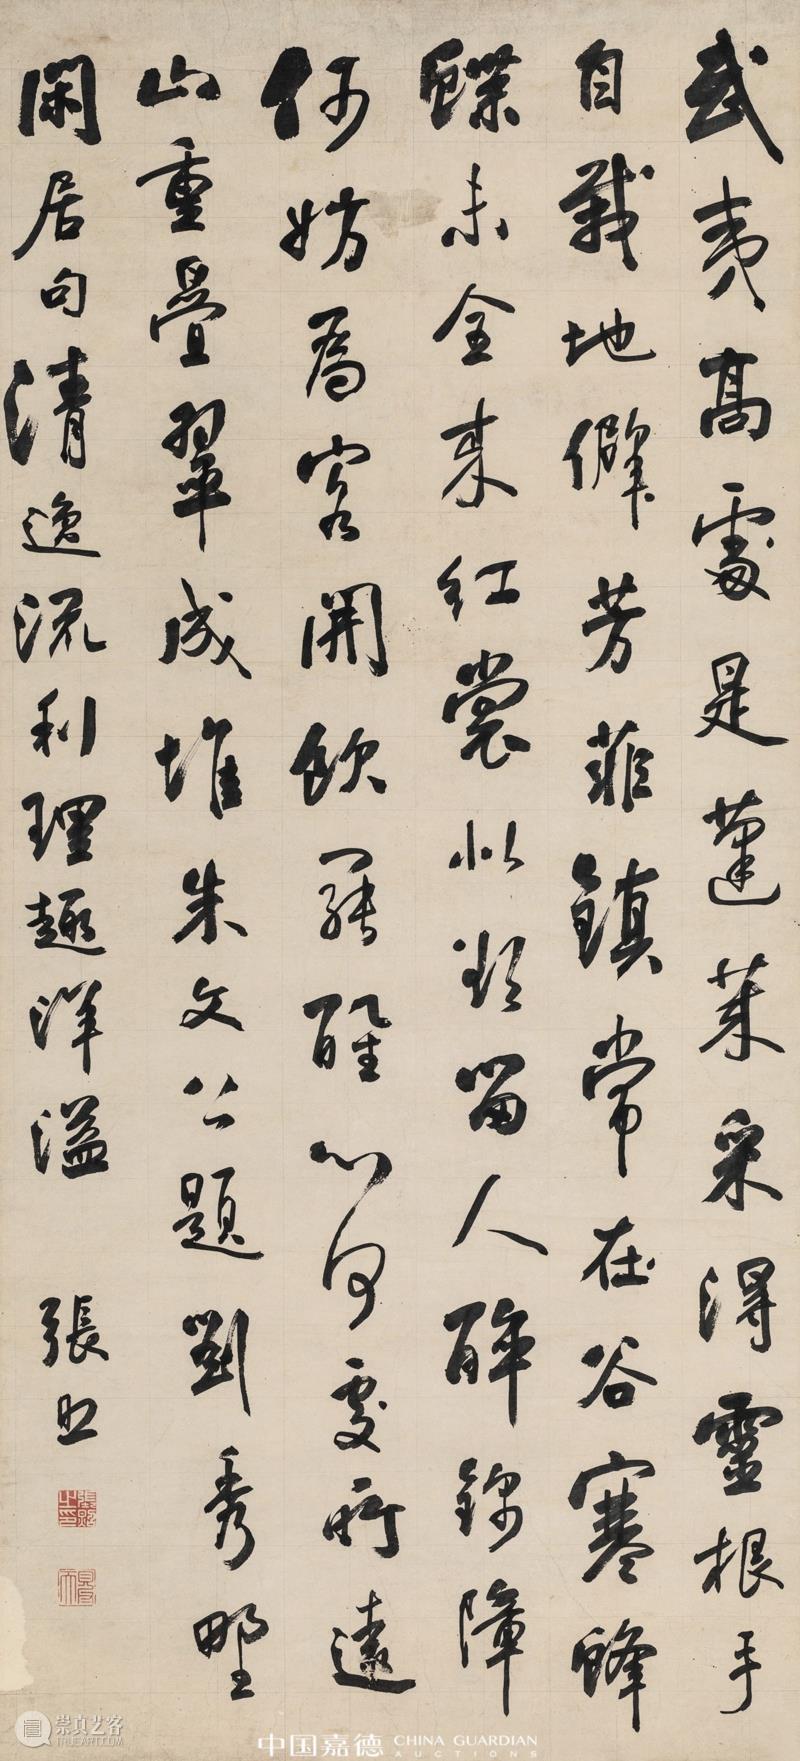 武夷高處是蓬萊采得靈根手
自栽地僻芳菲鎮常在谷寒蜂
蝶未全來紅裳似欲留人醉錦障
何妨為客開飲罷醒心何處所遠
山重疊翠成堆朱文公題劉秀野
閑居句清逸流利理趣洋溢
張照
中国嘉德 CHINA GUARDIAN
AUCTIONS
崇真艺客